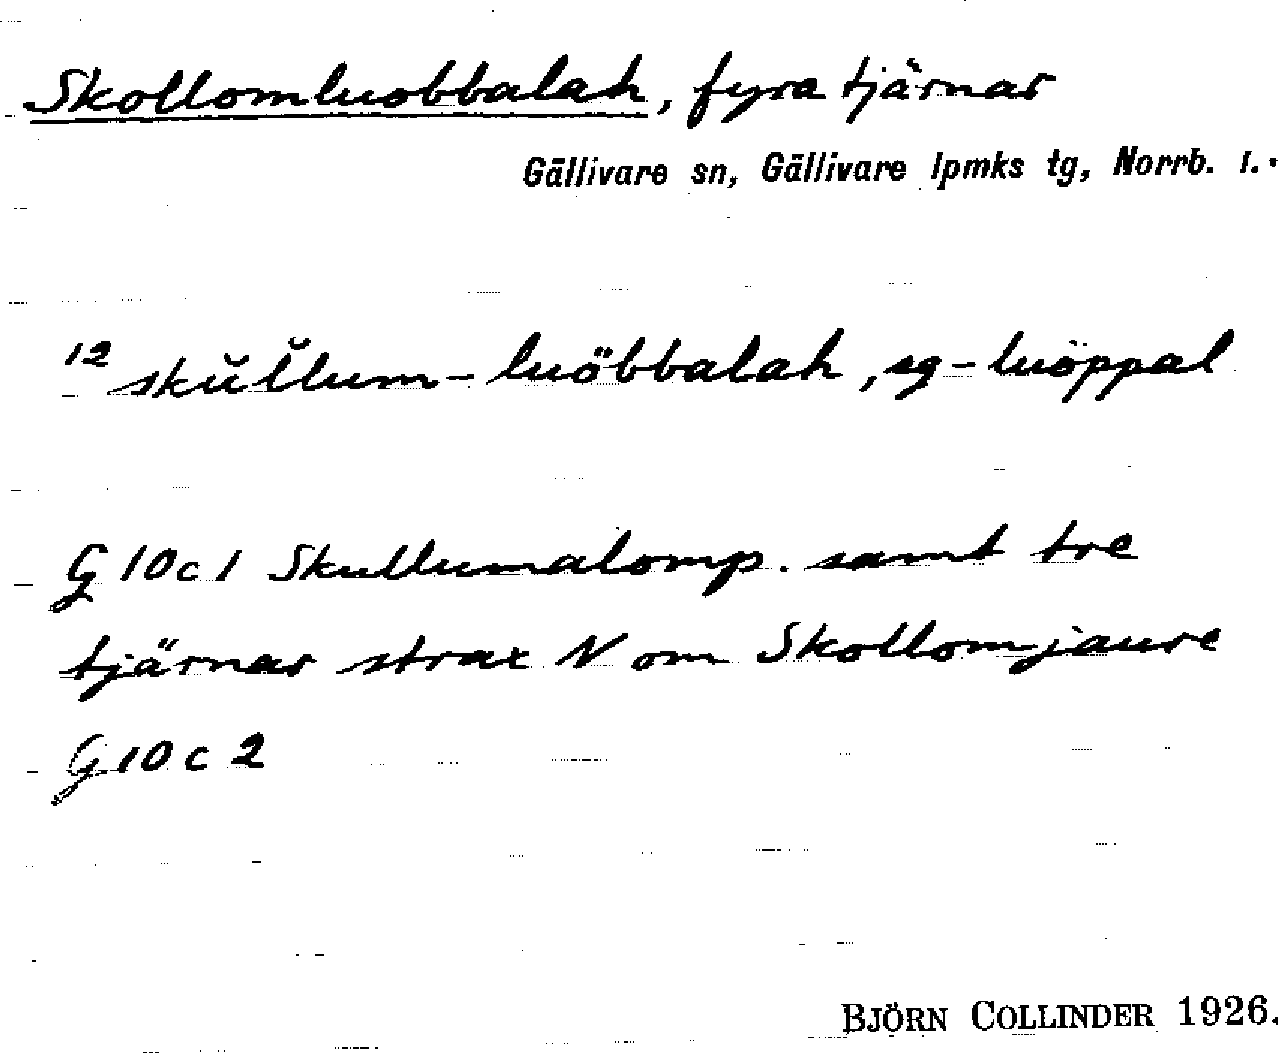 Skollomluobbalah, fyra tjärnar
Gällivare sn, Gällivare lpmks tg, Norrb. l.
12 skŭl̆lum-luöbbalah, sg -luöppal
G 10 c 1 Skullumalomp. samt tre
tjärnar strax N om Skollomjaure
G 10 c 2
BJÖRN COLLINDER 1926.